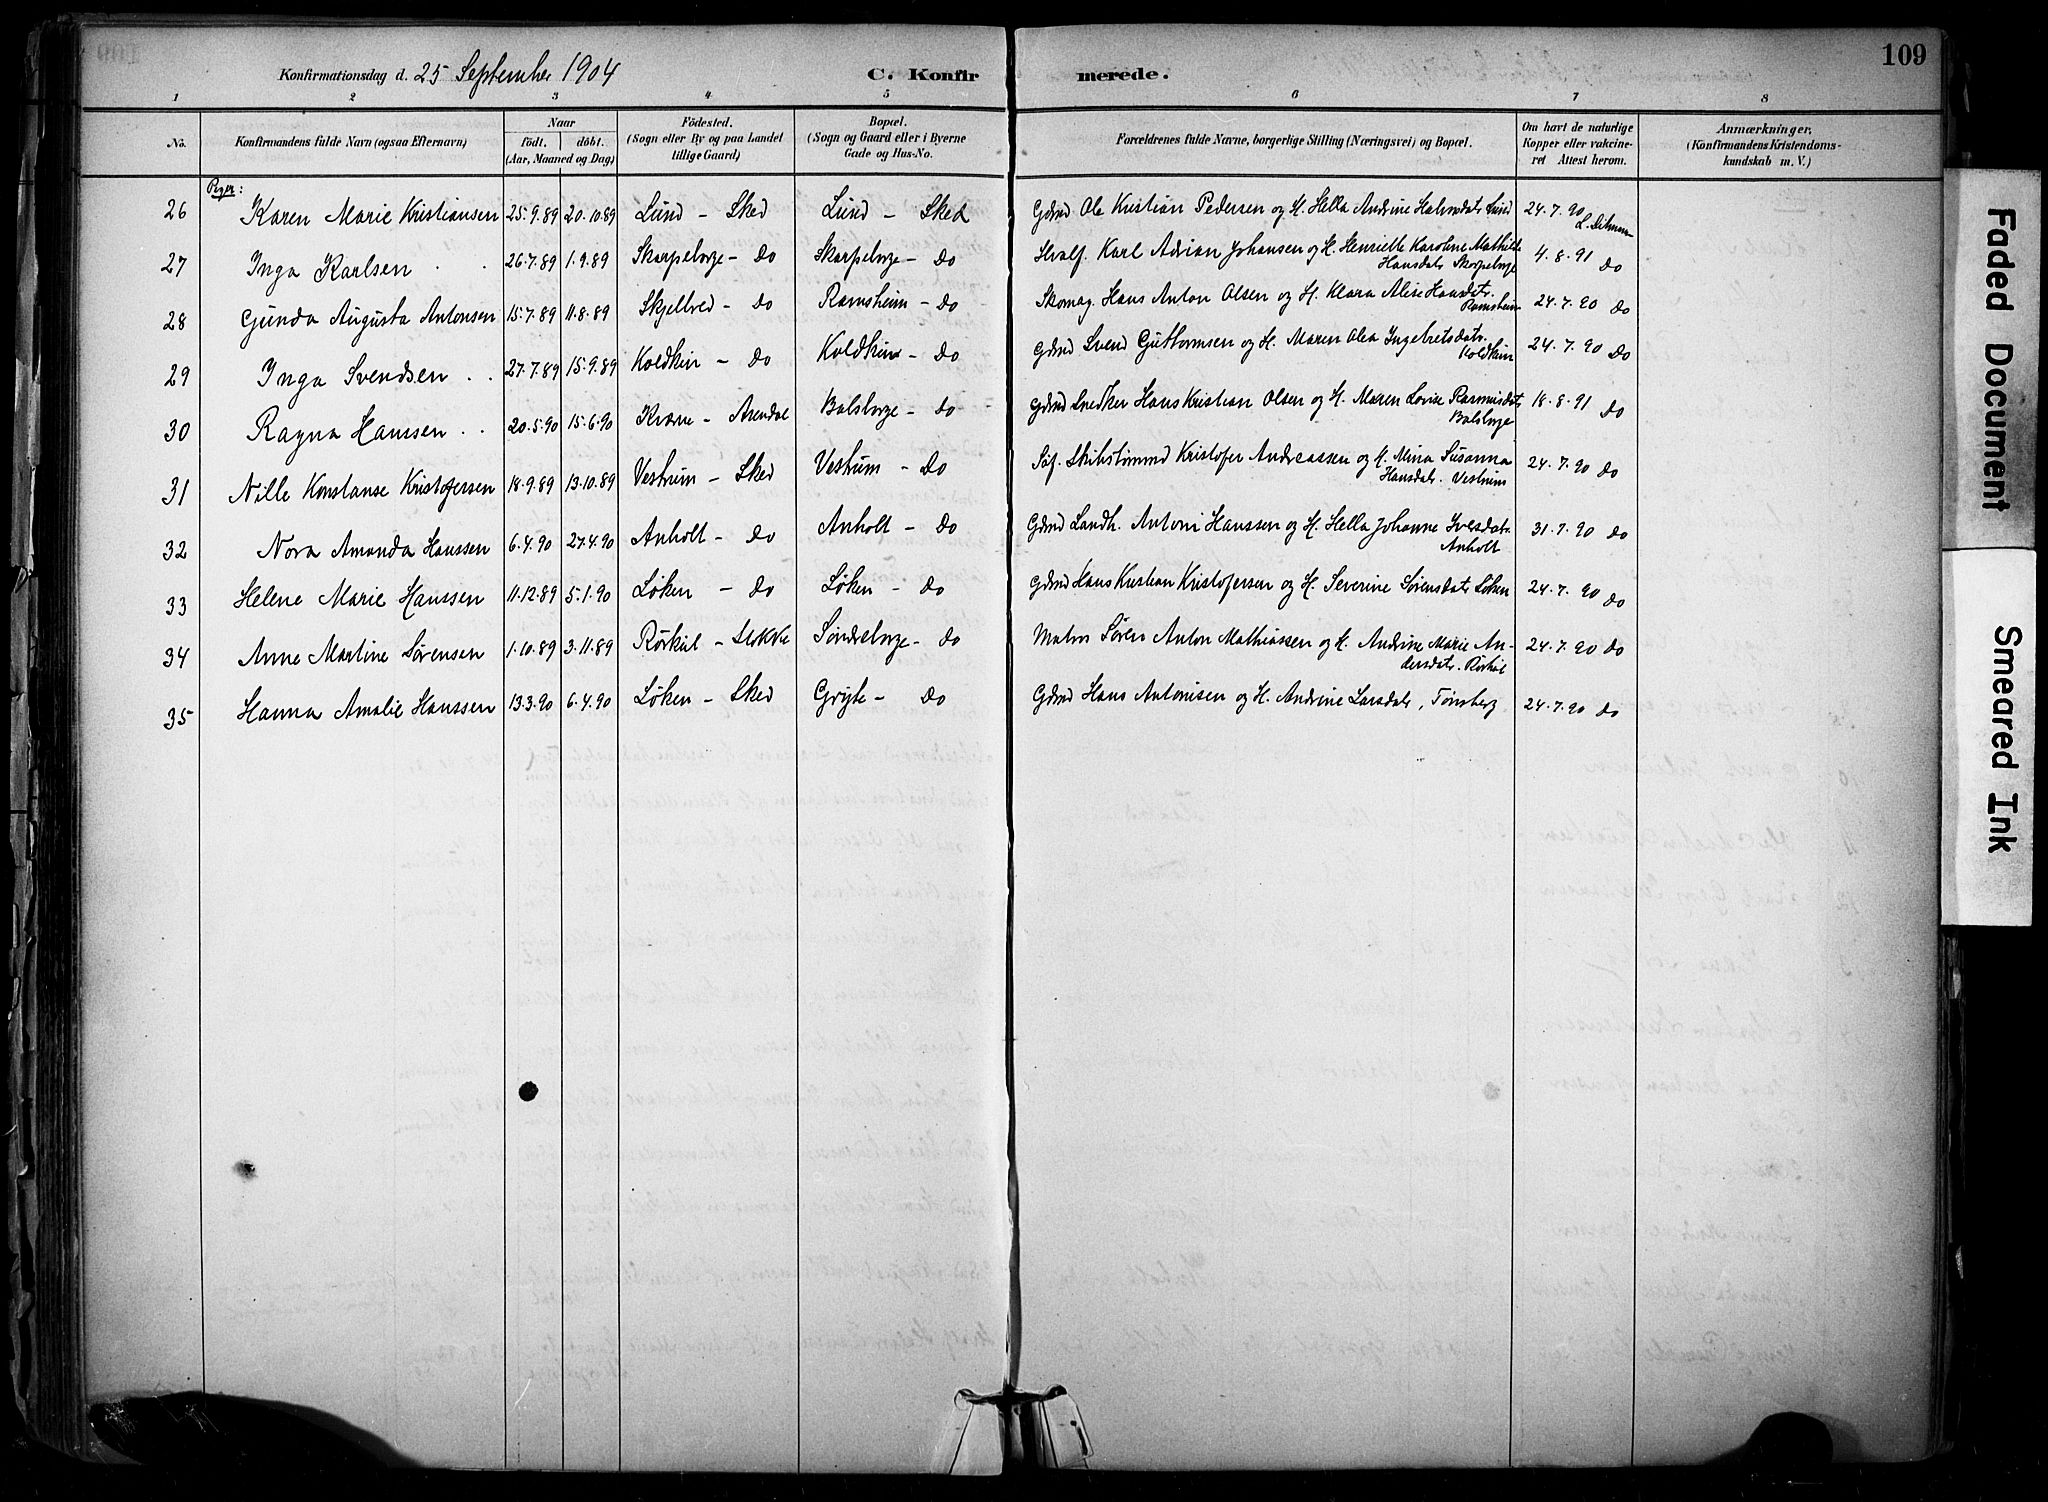 109
Konfirmationsdag d. 25 September 1904 C. Konfirmerede.
1 2 3 4 5 6 7 8
No. Konfirmandens fulde Navn (ogsaa Efternavn) Naar födt. döbt. (Aar, Maaned og Dag) Födested. (Sogn eller By og paa Landet tillige Gaard) Bopæl. (Sogn og Gaard eller i Byerne Gade og Hus-No. Forældrenes fulde Navne, borgerlige Stilling (Næringsvei) og Bopæl. Om havt de naturlige Kopper eller vakcineret Attest herom. Anmærkninger, (Konfirmandens Kristendomskundskab m. V.)
Piger:
26 Karen Marie Kristiansen 25.9.89 20.10.89 Lund - Sked Lund - Sked Gdmd Ole Kristian Pedersen og H. Hella Andrine Lund 24.7.90
27 Inga Karlsen 26.7.89 1.9.89 Skarpeborge - do Skarpeborge - do Hvalf. Karl Adrian Johansen og H. Henriette Karoline Mathilde
Hansdatr Skarpeborge 4.8.91 do
28 Gunda Augusta Antonsen 15.7.89 11.8.89 Skjellved - do Ramsheim - do Skomag. Hans Anton Olsen og H. Klara Alise Hansdatr.
Ramsheim 24.7.90 do
29 Inga Svendsen 27.7.89 15.9.89 Koldkin - do Koldkin - do Gdmd Svend Guttormsen og H. Maren Olea Ingebretsdatr.
Koldkin 24.7.90 do
30 Ragna Hanssen 20.5.90 15.6.90 - Arendal Bolsborge - do Gdmd Snedker Hans Kristian Olsen og H. Maren Lovise Rasmusdatr
Bolsborge 18.8.91 do
31 Nille Konstanse Kristofersen 18.9.89 13.10.89 Vestrum - Sked Vestrum - do Søf. Skibstømmd Kristofer Andreassen og H. Mina Susanna
Hansdatr. Vestrum 24.7.90 do
32 Nora Amanda Hanssen 6.4.90 27.4.90 Anholt - do Anholt - do Gdmd Landh. Antoni Hanssen og H. Hella Johanne Iversdatr
Anholt 31.7.90 do
33 Helene Marie Hanssen 11.12.89 5.1.90 Løken - do Løken - do Gdmd Hans Kristian Kristofersen og H. Severine Sørensdatr Løken 24.7.90 do
34 Anne Martine Sørensen 1.10.89 3.11.89 Rørkol - Stokke Søndreborge - do Matros Søren Anton Mathiassen og H. Andrine Marie An-
dersdatr. Rørkol 24.7.90 do
35 Hanna Amalie Hanssen 13.3.90 6.4.90 Løken - Sked Gryte - do Gdmd Hans Antonisen og H. Andrine Larsdatr, Tønsberg 24.7.90 do
Faded Document
Smeared Ink